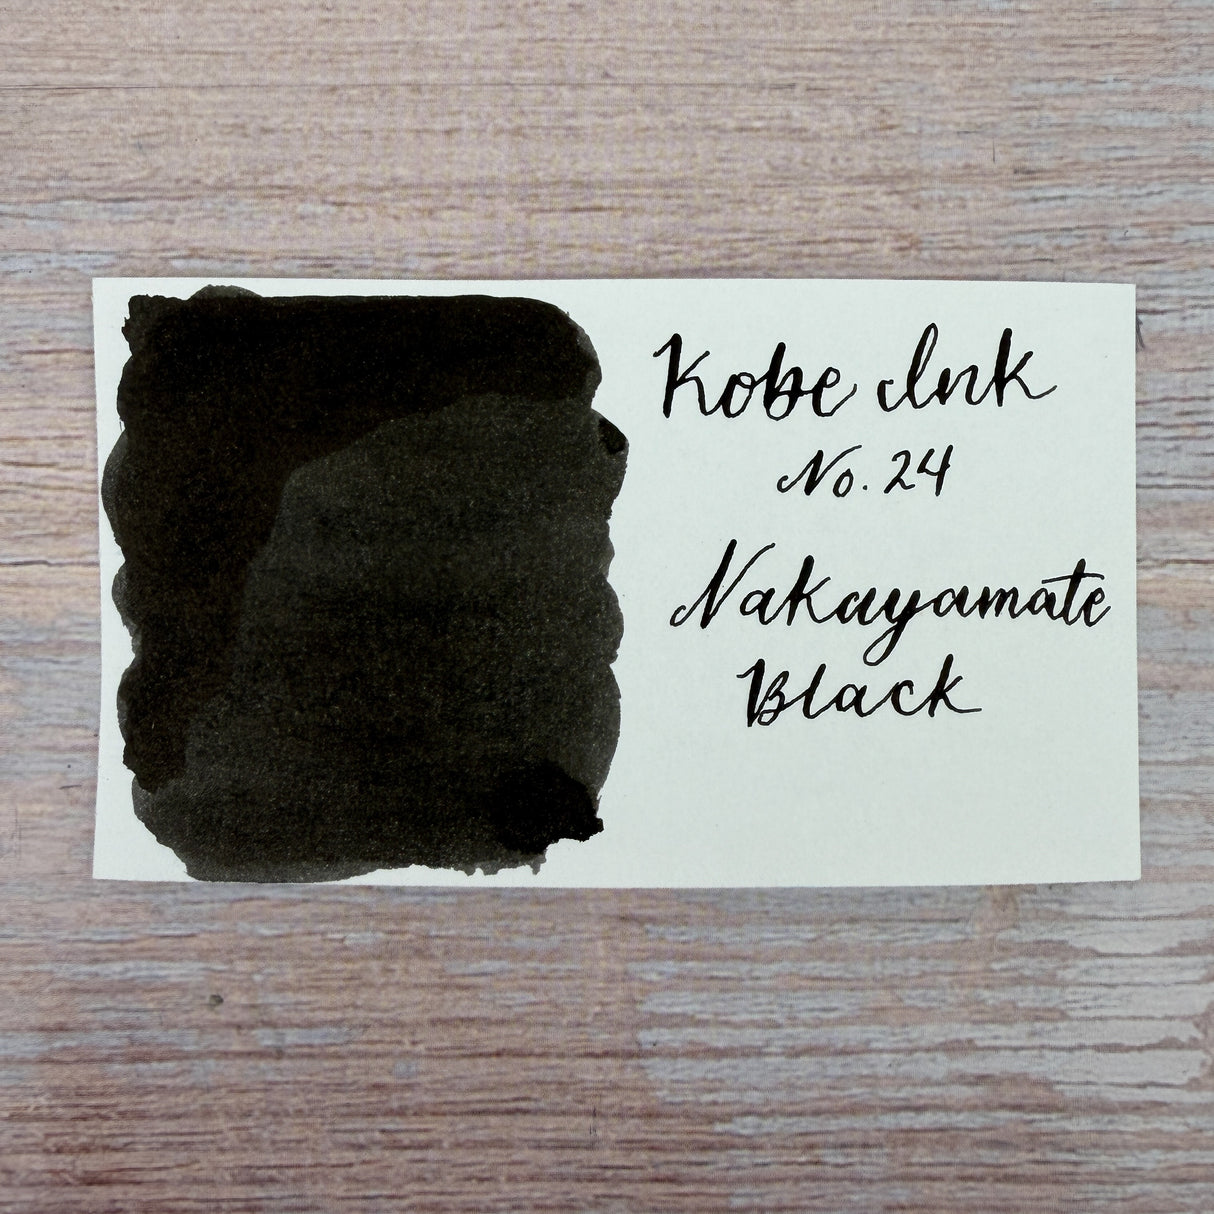 Kobe Ink
No. 24
Nakayamate
Black